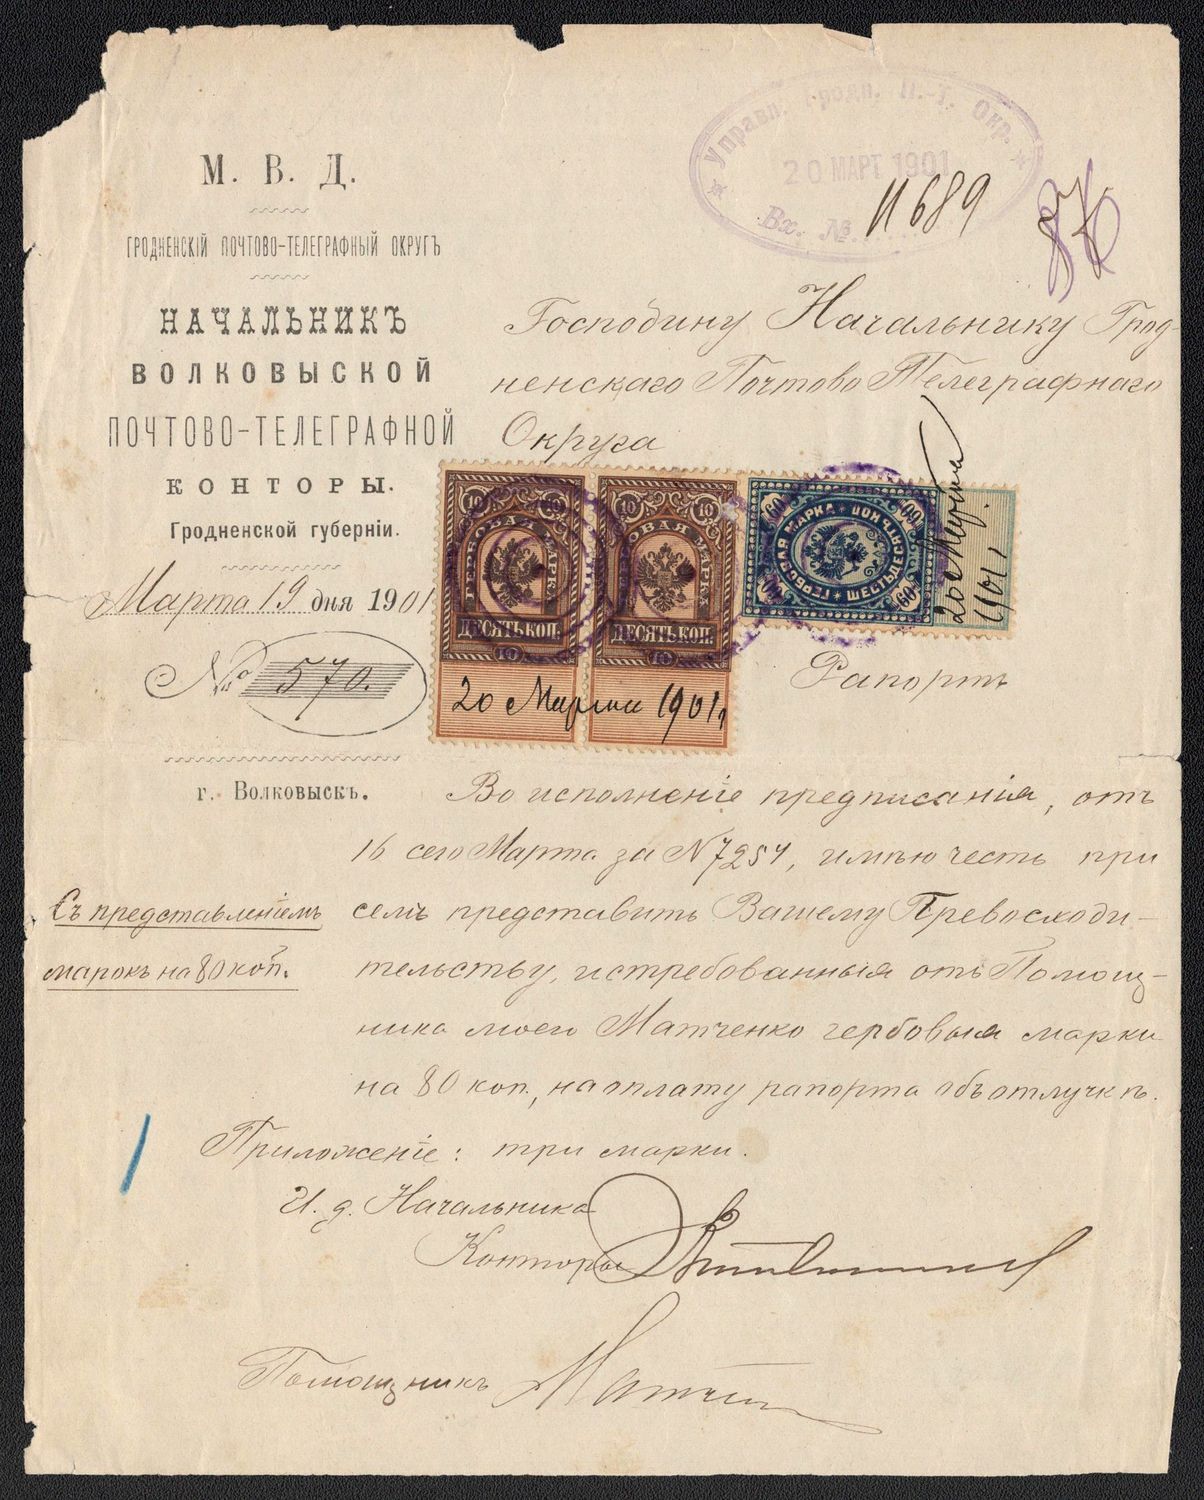 Управл. Гродн. П.-Т. Окр.
20 МАРТ 1901
Вх. №
11689
М. В. Д.
ГРОДНЕНСКІЙ ПОЧТОВО-ТЕЛЕГРАФНЫЙ ОКРУГЪ
НАЧАЛЬНИКЪ
ВОЛКОВЫСКОЙ
ПОЧТОВО-ТЕЛЕГРАФНОЙ
КОНТОРЫ.
Гродненской губерніи.
Марта 19 дня 1901
№ 570.
г. Волковыскъ.
Господину Начальнику Грод-
ненскаго Почтово Телеграфнаго
Округа
10 10
ГЕРБОВАЯ МАРКА
ДЕСЯТЬ КОП.
10
10 10
ГЕРБОВАЯ МАРКА
ДЕСЯТЬ КОП.
10
20 Марта 1901 г.
60 60
ГЕРБОВАЯ МАРКА
ШЕСТЬДЕСЯТЪ КОП
60 60
20 Марта
1901
Рапортъ
Во исполненіе предписанія, отъ
16 сего Марта за № 7254, имѣю честь при
семъ представить Вашему Превосходи-
тельству, истребованныя отъ Помощ-
ника моего Матченко гербовыя марки
на 80 коп., на оплату рапорта объ отлучкѣ.
Съ представленіемъ
марокъ на 80 коп.
Приложеніе: три марки.
И. д. Начальника
Конторы
Помощникъ